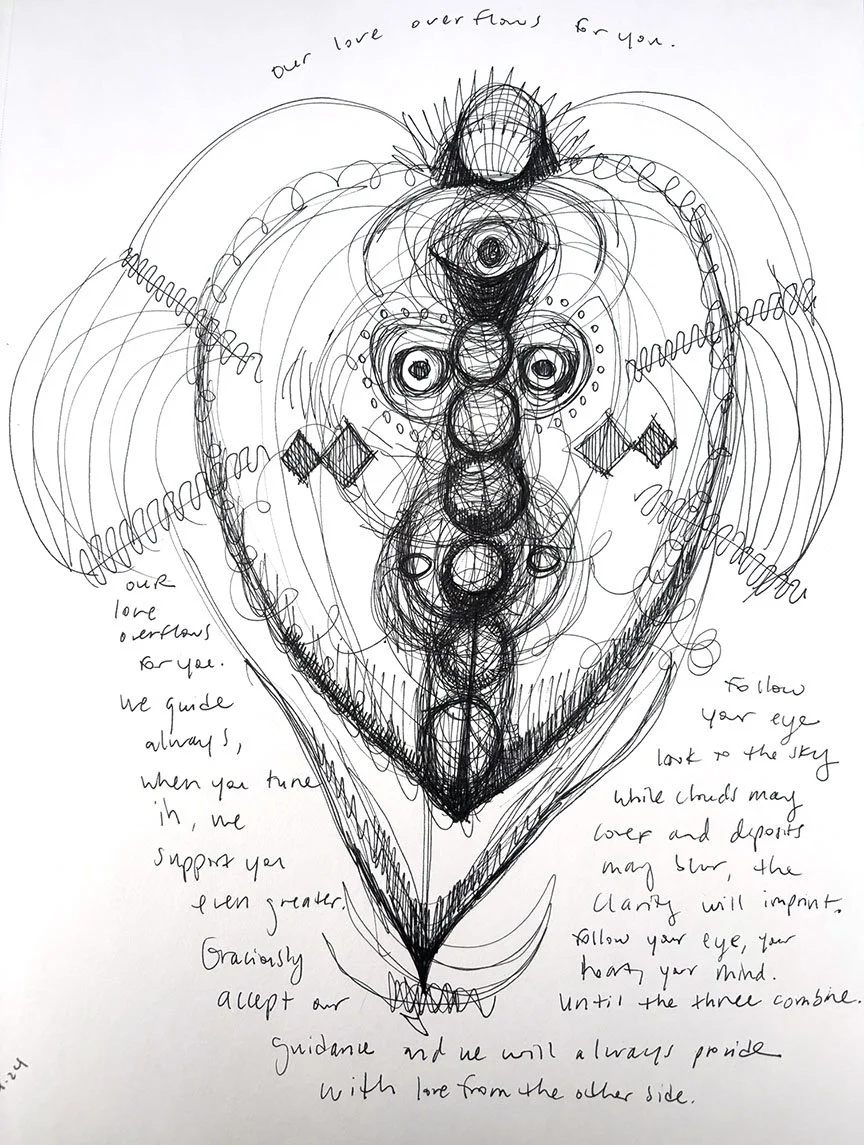 our love overflows for you.
our
love
overflows
for you.
we guide
always,
when you tune
in, we
support you
even greater.
Graciously
accept our
Follow
your eye
look to the sky
while clouds may
cover and deposits
may blur, the
Clarity will imprint.
Follow your eye, your
heart, your mind.
Until the three combine.
guidance and we will always provide
with love from the other side.